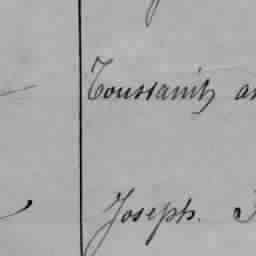 Toussaint, an
Joseph.